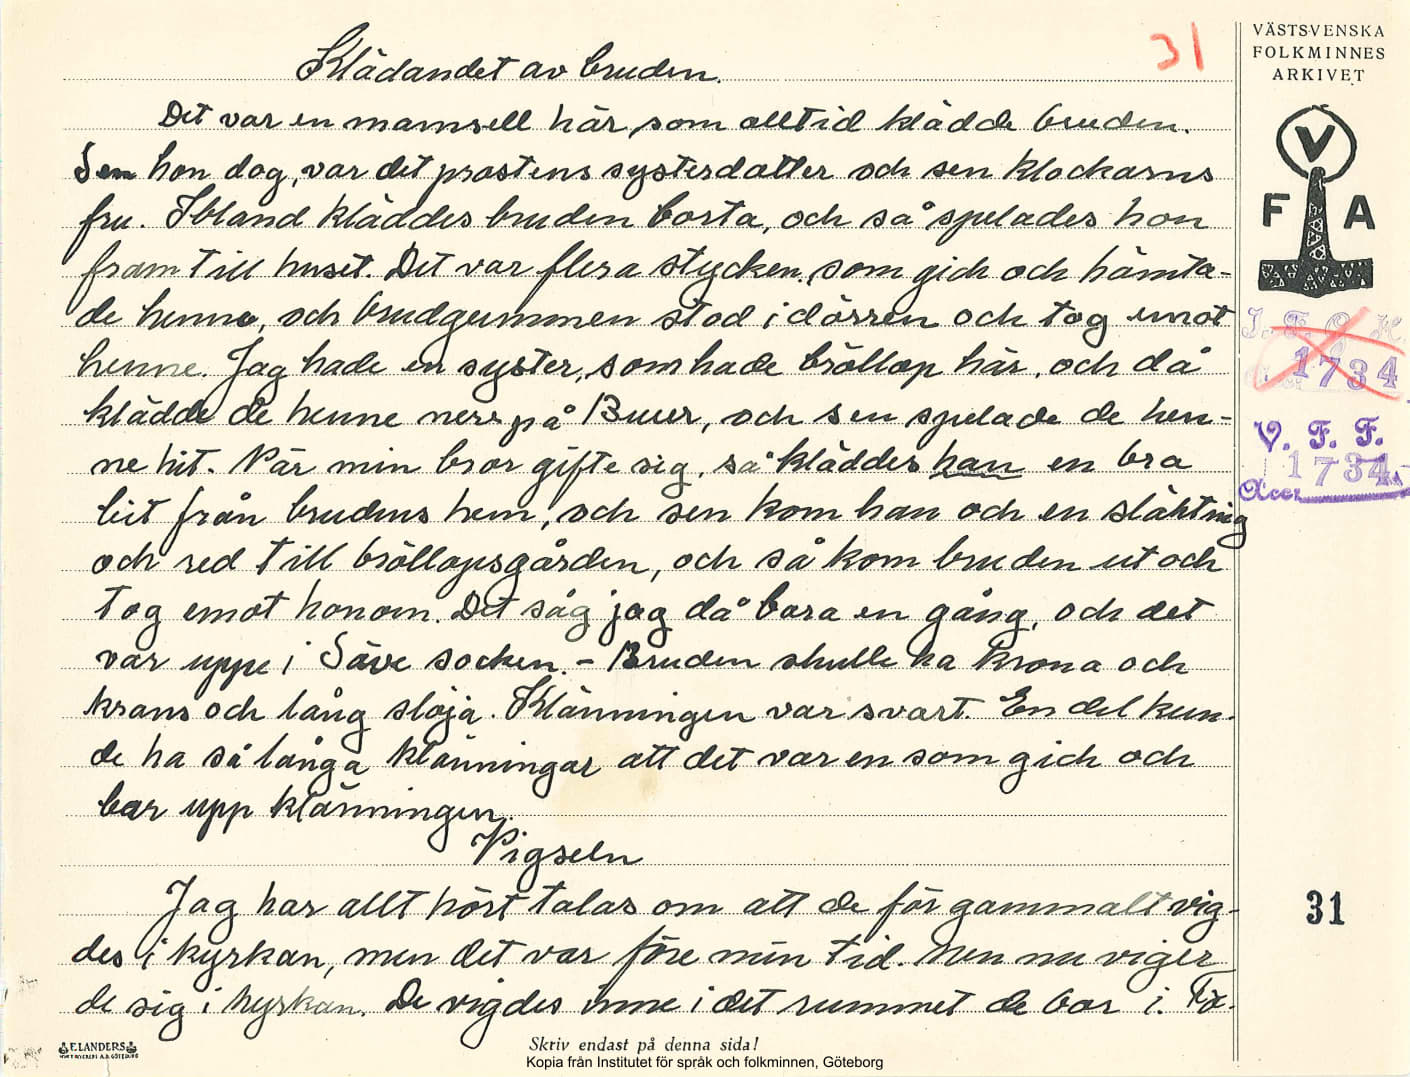 31
VÄSTSVENSKA
FOLKMINNES
ARKIVET
V
F A
Klädandet av bruden.
Det var en mamsell här, som alltid klädde bruden.
Sen hon dog, var det prostens systerdatter och sen klockarns
fru. Ibland kläddes bruden borta, och så spelades hon
fram till huset. Det var flera stycken, som gick och hämta-
de henne, och brudgummen stod i dörren och tog emot
henne. Jag hade en syster, som hade bröllop här, och då
klädde de henne nere på Buer, och sen spelade de hen-
ne hit. När min bror gifte sig, så kläddes han en bra
bit från brudens hem, och sen kom han och en släkting
och red till bröllopsgården, och så kom bruden ut och
tog emot honom. Det såg jag då bara en gång, och det
var uppe i Säve socken. - Bruden skulle ha krona och
krans och lång slöja. Klänningen var svart. En del kun-
de ha så långa klänningar att det var en som gick och
bar upp klänningen.
Vigseln
Jag har allt hört talas om att de för gammalt vig-
des i kyrkan, men det var före min tid. Men nu viger
de sig i kyrkan. De vigdes inne i det rummet de bar i. Fö-
1734
V. F. F.
1734
Acc.
31
F. LANDERS
Skriv endast på denna sida!
Kopia från Institutet för språk och folkminnen, Göteborg